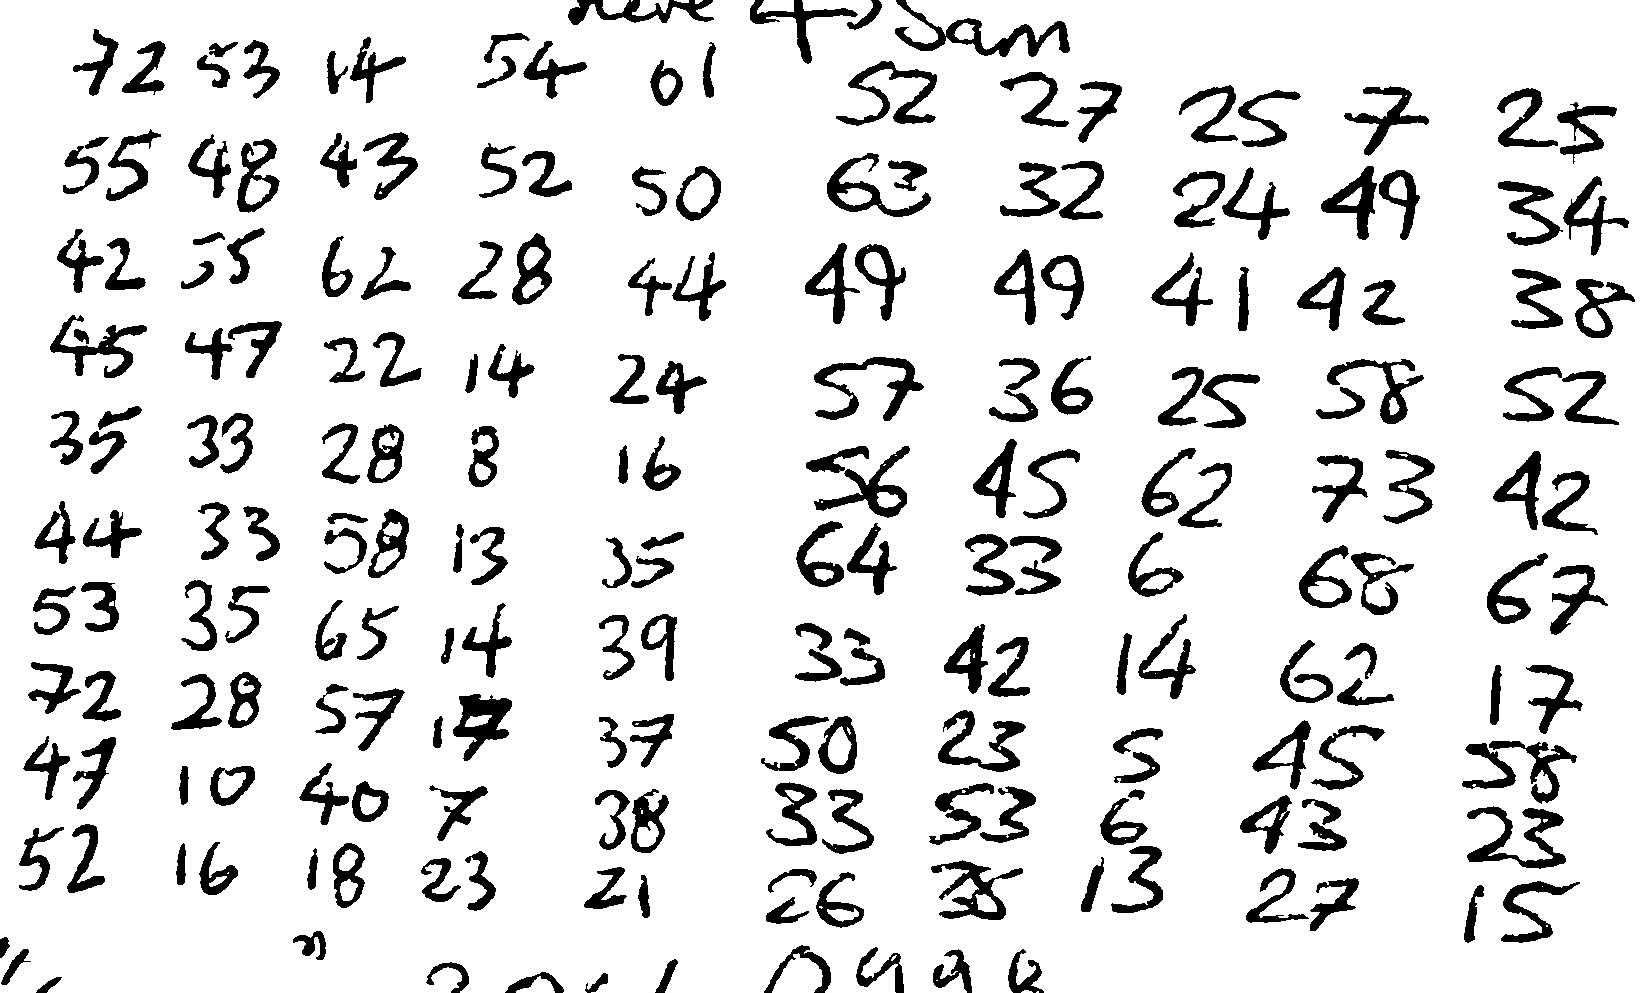 Sam
72 53 14 54 61 52 27 25 7 25
55 48 43 52 50 63 32 24 49 34
42 55 62 28 44 49 49 41 42 38
45 47 22 14 24 57 36 25 58 52
35 33 28 8 16 56 45 62 73 42
44 33 58 13 35 64 33 6 68 67
53 35 65 14 39 33 42 14 62 17
72 28 57 17 37 50 23 5 45 58
47 10 40 7 38 33 53 6 43 23
52 16 18 23 21 26 38 13 27 15